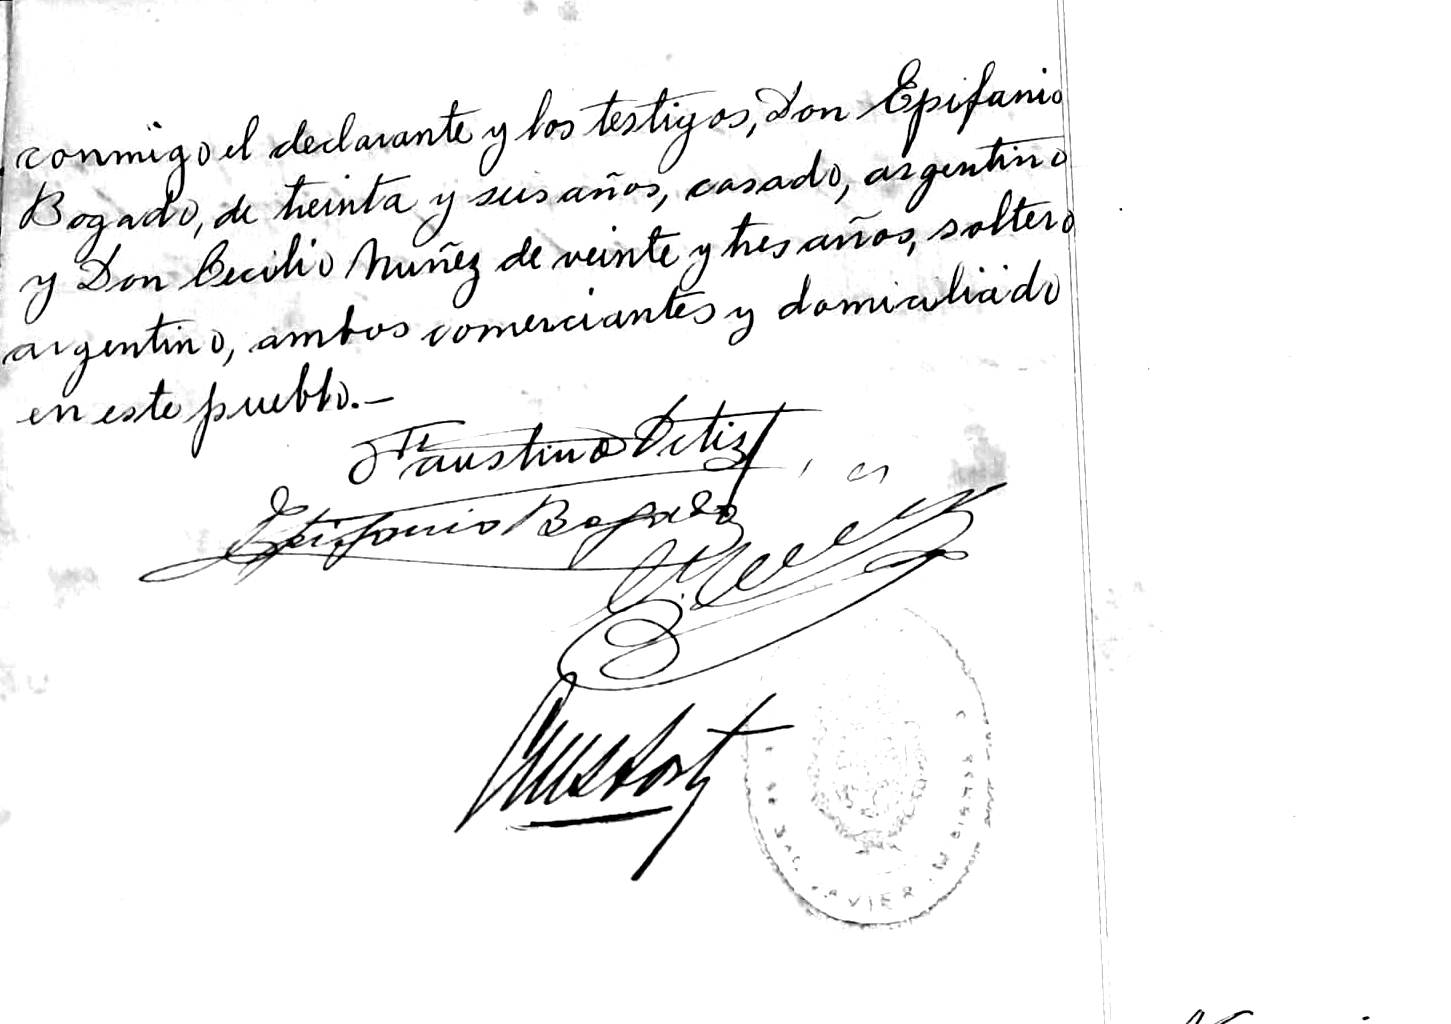 conmigo el declarante y los testigos, Don Epifanio
Bogado, de treinta y seis años, casado, argentino
y Don Cecilio Nuñez de veinte y tres años, soltero
argentino, ambos comerciantes y domiciliado
en este pueblo.—
Faustino Ortiz
Epifanio Bogado